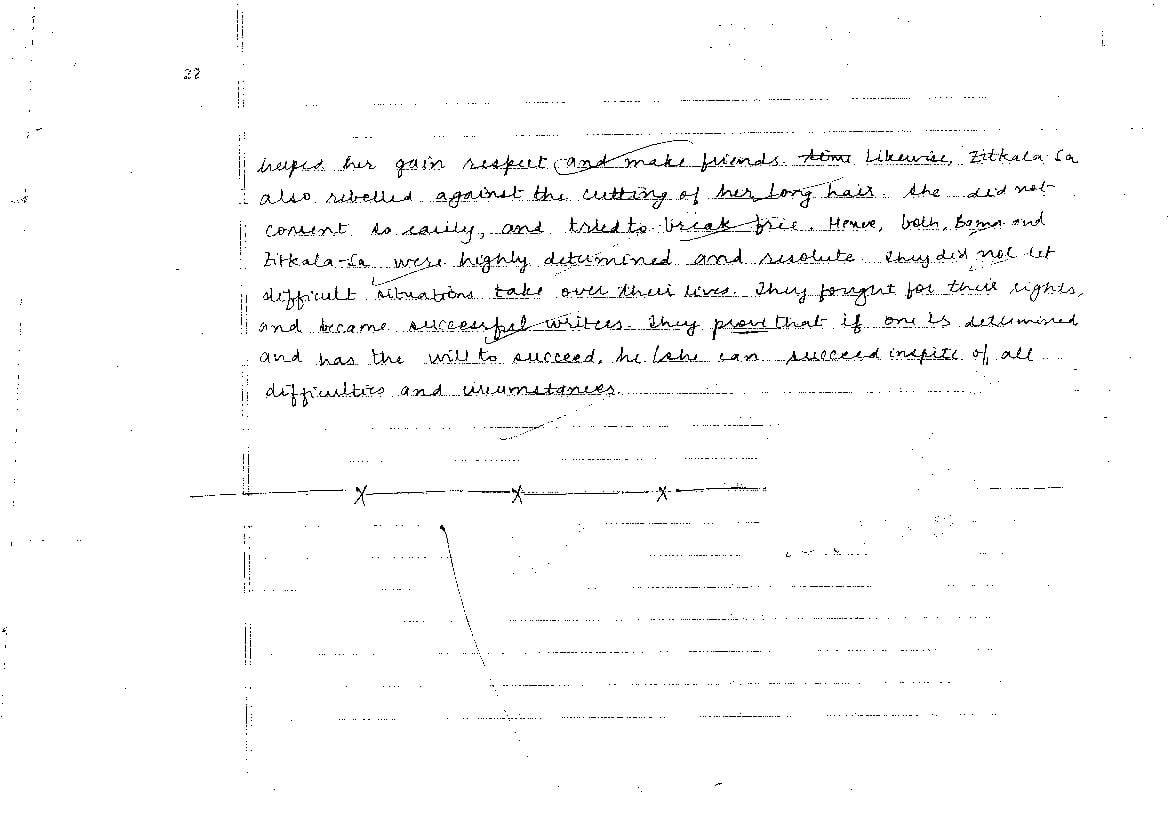 27
helped her gain respect and make friends. Likewise, Zitkala Sa
also rebelled against the cutting of her long hair. She did not
consent so easily, and tried to break free. Hence, both, Bama and
Zitkala-Sa were highly determined and resolute. They did not let
difficult situations take over their lives. They fought for their rights,
and became successful writers. They prove that if one is determined
and has the will to succeed, he/she can succeed inspite of all
difficulties and circumstances.